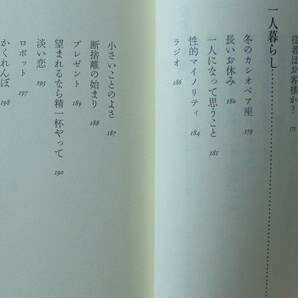 一人暮らし
冬のカシオペア座 179
長いお休み 180
一人になって思うこと 181
性的マイノリティ 184
ラジオ 186
小さいことのよさ 187
断捨離の始まり 188
プレゼント 189
望まれるなら精一杯やって 190
淡い恋 193
ロボット 196
かくれんぼ 198